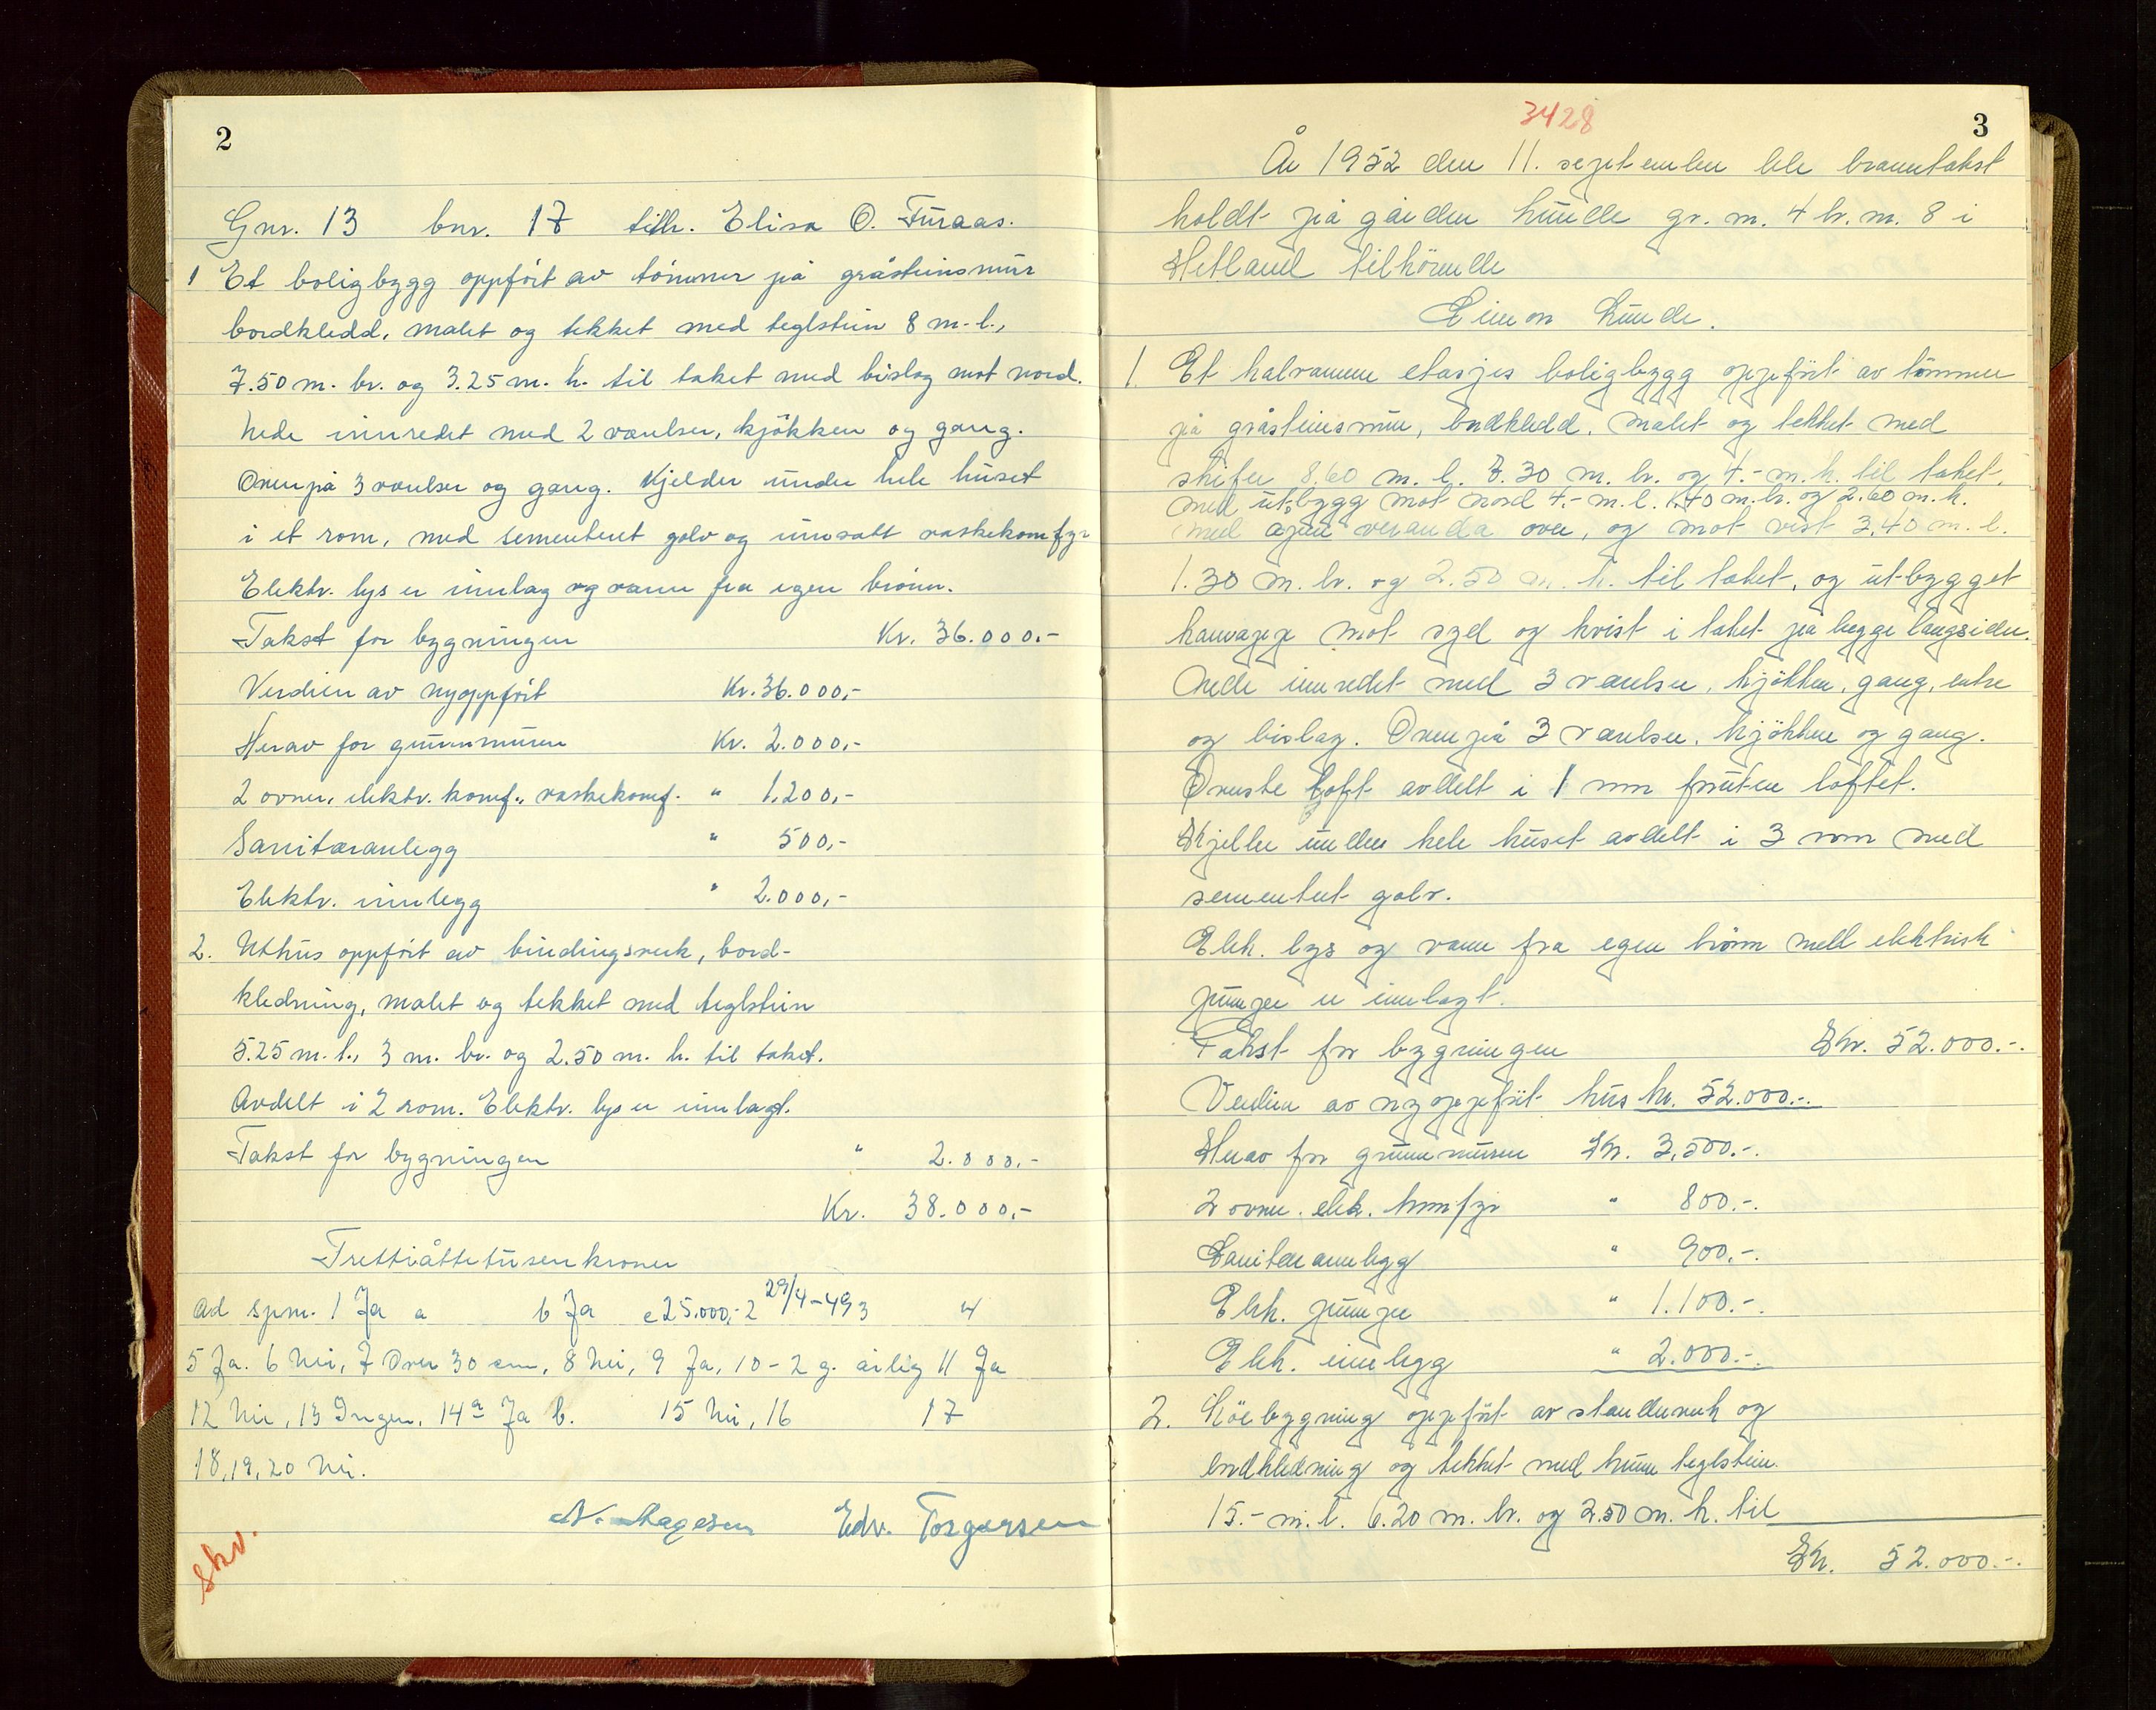 2
Gnr. 13 bnr. 17 tilh. Elisa O. Furaas.
1 Et boligbygg oppfört av tömmer på gråsteinsmur
bordkledd, malet og tekket med teglstein 8 m. l.,
7.50 m. br. og 3.25 m. h. til taket med bislag mot nord.
Nede innredet med 2 værelser, kjökken og gang.
Ovenpå 3 værelser og gang. Kjelder under hele huset
i et rom, med sementeret golv og innsatt vaskekomfyr
Elektr. lys er innlag og vann fra egen brönn.
Takst for bygningen Kr. 36.000.-
Verdien av nyoppfört Kr. 36.000,-
Herav for grunnmuren Kr. 2.000,-
2 ovner, elektr. komf., vaskekomf. " 1.200,-
Sanitæranlegg " 500,-
Elektr. innlegg " 2.000,-
2. Uthus oppfört av bindingsverk, bord-
kledning, malet og tekket med teglstein
5.25 m. l., 3 m. br. og 2.50 m. h. til taket.
Avdelt i 2 rom. Elektr. lys er innlagt.
Takst for bygningen " 2.000.-
Kr. 38.000,-
Trettiåttetusenkroner
Ad spm. 1 Ja a b Ja c 25.000,- 2 29/4-49 3 4
5 Ja. 6 Nei, 7 Over 30 cm, 8 Nei, 9 Ja, 10 - 2 g. årlig 11 Ja
12 Nei, 13 Ingen, 14 a Ja b. 15 Nei, 16 17
18, 19, 20 Nei.
Edv. Torgersen
Skv.
3428
3
År 1952 den 11. september ble branntakst
holdt på gården Lunde gr. m. 4 br. m. 8 i
Hetland tilhörende
Eimon Lunde.
1. Et halvannen etasjes boligbygg oppfört av tömmer
på gråsteinsmur, bordkledd, malet og tekket med
skifer 8.60 m. l. 7.30 m. br. og 4.- m. h. til taket,
med utbygg mot nord 4.- m. l. 1.40 m. br. og 2.60 m. h.
med åpen veranda over, og mot vest 3.40 m. l.
1.30 m. br. og 2.50 m. h. til taket, og utbygget
karnapp mot syd og kvist i taket på begge langsider.
Nede innredet med 3 værelser, kjökken, gang, entre
og bislag. Ovenpå 3 værelser, kjökken og gang.
Överste loft avdelt i 1 rom foruten loftet.
Kjeller under hele huset avdelt i 3 rom med
sementert golv.
Elek. lys og vann fra egen brönn med elektrisk
pumpe er innlagt.
Takst for bygningen Kr. 52.000.-.
Verdien av nyoppfört hus kr. 52.000.-.
Herav for grunnmuren Kr. 3.500.-.
2 ovner. elek. komfyr " 800.-.
Sanitæranlegg " 900.-.
Elek. pumpe " 1.100.-.
Elek. innlegg " 2.000.-.
2. Löebygning oppfört av stenderverk og
bordkledning og tekket med krum teglstein.
15.- m. l. 6.20 m. br. og 2.50 m. h. til
Kr. 52.000.-.